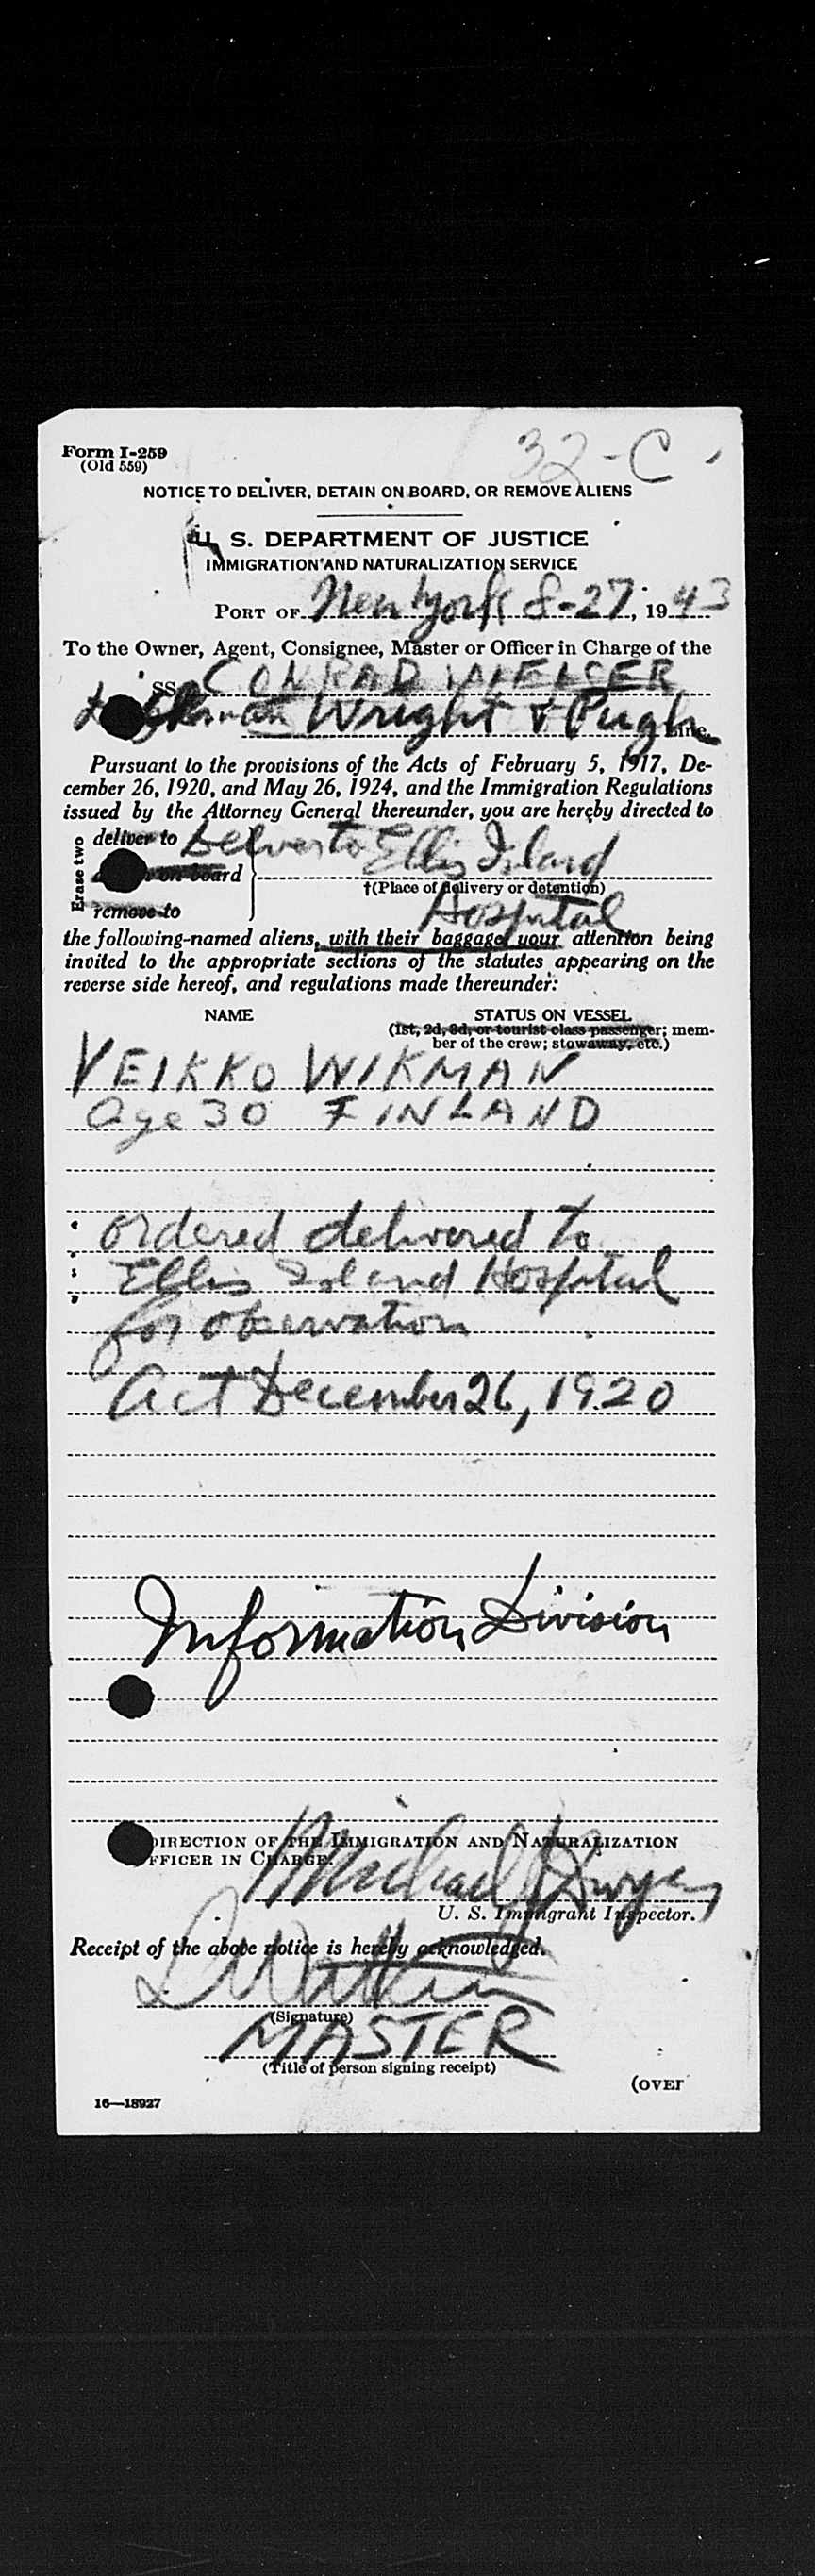 32-C
Form I-259
(Old 559)
NOTICE TO DELIVER, DETAIN ON BOARD, OR REMOVE ALIENS
U. S. DEPARTMENT OF JUSTICE
IMMIGRATION AND NATURALIZATION SERVICE
PORT OF New York 8-27, 1943
To the Owner, Agent, Consignee, Master or Officer in Charge of the
SS CONRAD WEISER
Wright & Pugh Line.
Pursuant to the provisions of the Acts of February 5, 1917, De-
cember 26, 1920, and May 26, 1924, and the Immigration Regulations
issued by the Attorney General thereunder, you are hereby directed to
Erase two
deliver to Deliver to Ellis Island
on board
†(Place of delivery or detention)
remove to Hospital
the following-named aliens, with their baggage, your attention being
invited to the appropriate sections of the statutes appearing on the
reverse side hereof, and regulations made thereunder:
NAME STATUS ON VESSEL
(1st, 2d, 3d, or tourist class passenger; mem-
ber of the crew; stowaway, etc.)
VEIKKO WIKMAN
Age 30 FINLAND
ordered delivered to
Ellis Island Hospital
for observation
Act December 26, 1920
Information Division
DIRECTION OF THE IMMIGRATION AND NATURALIZATION
OFFICER IN CHARGE.
Michael Dwyer
U. S. Immigrant Inspector.
Receipt of the above notice is hereby acknowledged.
(Signature)
MASTER
(Title of person signing receipt)
(OVER
16—18927